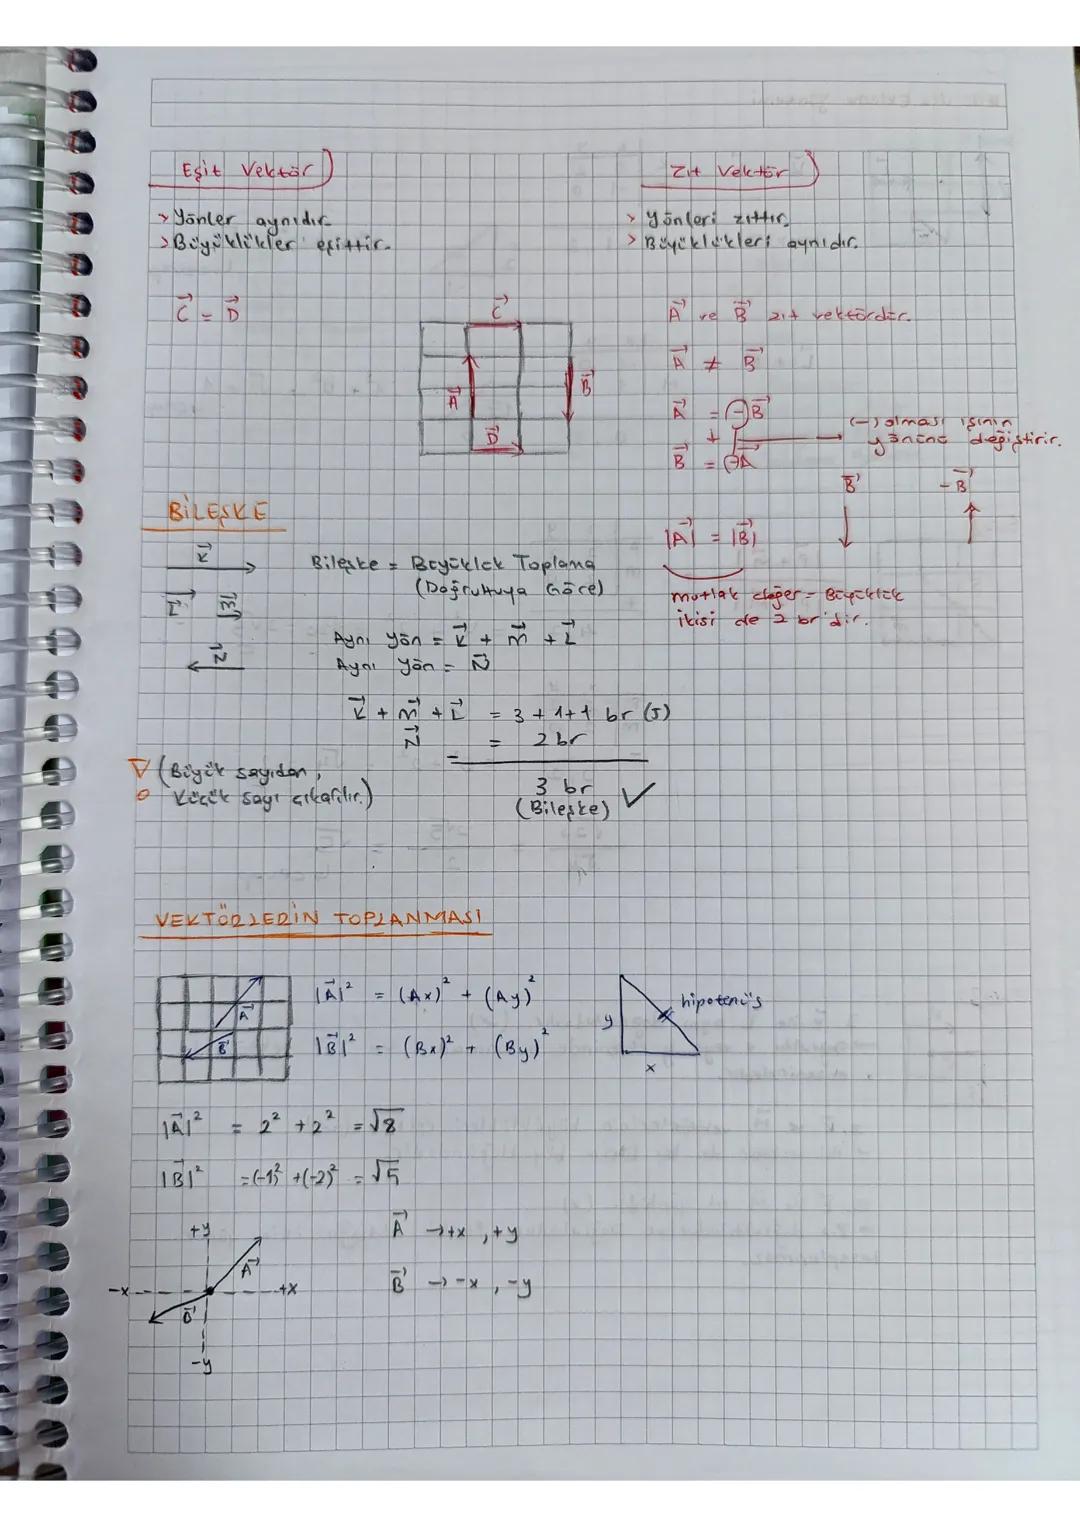 Eşit Vektör)
> Yönler aynıdır.
> Büyüklükler eşittir.
C⃗ = D⃗
C⃗
A⃗
B⃗
D⃗
Zıt Vektör)
> Yönleri zıttır.
> Büyüklükleri aynıdır.
A⃗ ve B⃗ zıt vektördür.
A⃗ ≠ B⃗
A⃗ = -B⃗
B⃗ = -A⃗
(-) olması ışının
yönünü değiştirir.
B⃗
-B⃗
|A⃗| = |B⃗|
mutlak değer = Büyüklük
ikisi de 2 br'dir.
BİLEŞKE
K⃗
L⃗ M⃗
N⃗
Bileşke = Büyüklük Toplama
(Doğrultuya Göre)
Aynı yön = K⃗ + M⃗ + L⃗
Aynı Yön = N⃗
K⃗ + M⃗ + L⃗ = 3 + 1 + 1 br (5)
N⃗ = 2 br
=
3 br
(Bileşke) ✓
(Büyük sayıdan,
Küçük sayı çıkarılır.)
VEKTÖRLERİN TOPLANMASI
A⃗
B⃗
|A⃗|² = (Ax)² + (Ay)²
|B⃗|² = (Bx)² + (By)²
y
x
hipotenüs
|A⃗|² = 2² + 2² = √8
|B⃗|² = (-1)² + (-2)² = √5
+y
-x
+x
-y
A⃗
B⃗
A⃗ → +x, +y
B⃗ → -x, -y